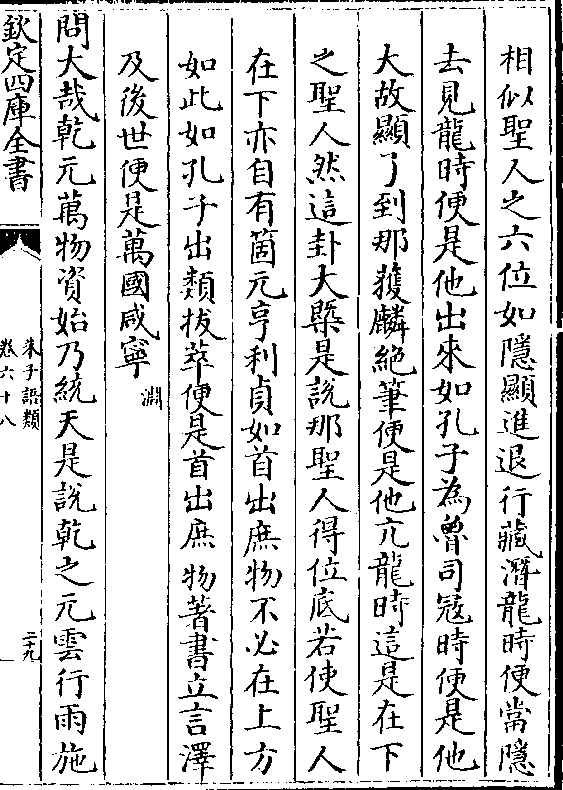 相似聖人之六位如隱顯進退行藏潛龍時便當隱
去見龍時便是他出來如孔子為魯司寇時便是他
大故顯了到那獲麟絶筆便是他亢龍時這是在下
之聖人然這卦大槩是說那聖人得位底若使聖人
在下亦自有箇元亨利貞如首出庶物不必在上方
如此如孔子出類拔萃便是首出庶物著書立言澤
及後世便是萬國咸寧淵
問大哉乾元萬物資始乃統天是說乾之元雲行雨施
欽定四庫全書
朱子語類
卷六十八
二十九